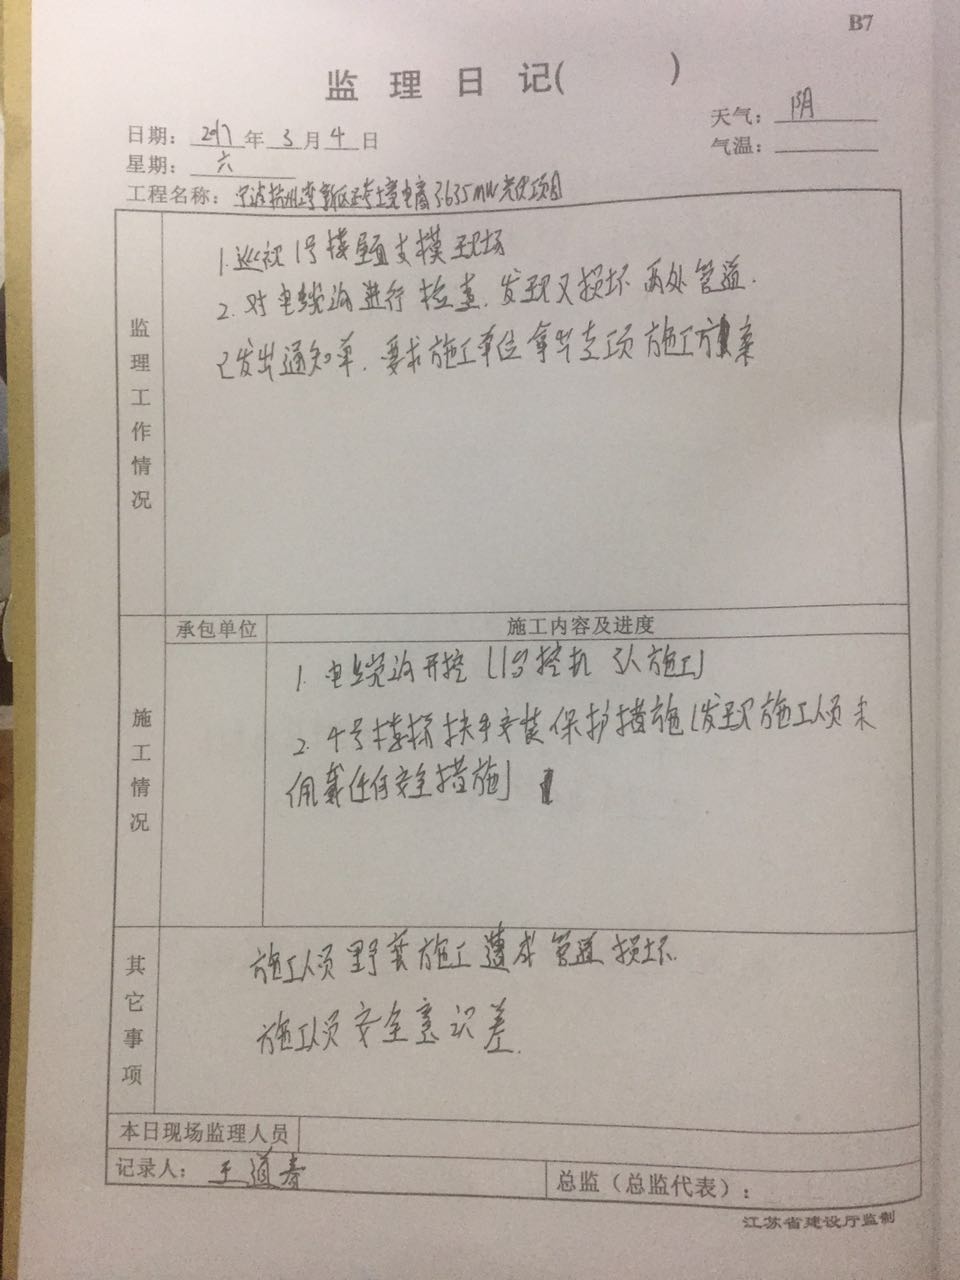 B7
监理日记( )
日期: 2017年3月4日
天气: 阴
星期: 六
气温:
工程名称: 宁波杭州湾新区 电商 3.635MW光伏项目
监理工作情况
1.巡视1号楼屋面支模现场
2.对电缆沟进行检查.发现又损坏两处管道.
已发出通知单.要求施工单位拿出专项施工方案
承包单位
施工内容及进度
施工情况
1.电缆沟开挖(1台挖机 3人施工)
2.4号楼 扶手安装保护措施(发现施工人员未
佩戴任何安全措施)
其它事项
施工人员野蛮施工遭成管道损坏.
施工人员安全意识差.
本日现场监理人员
记录人: 王道春
总监(总监代表):
江苏省建设厅监制